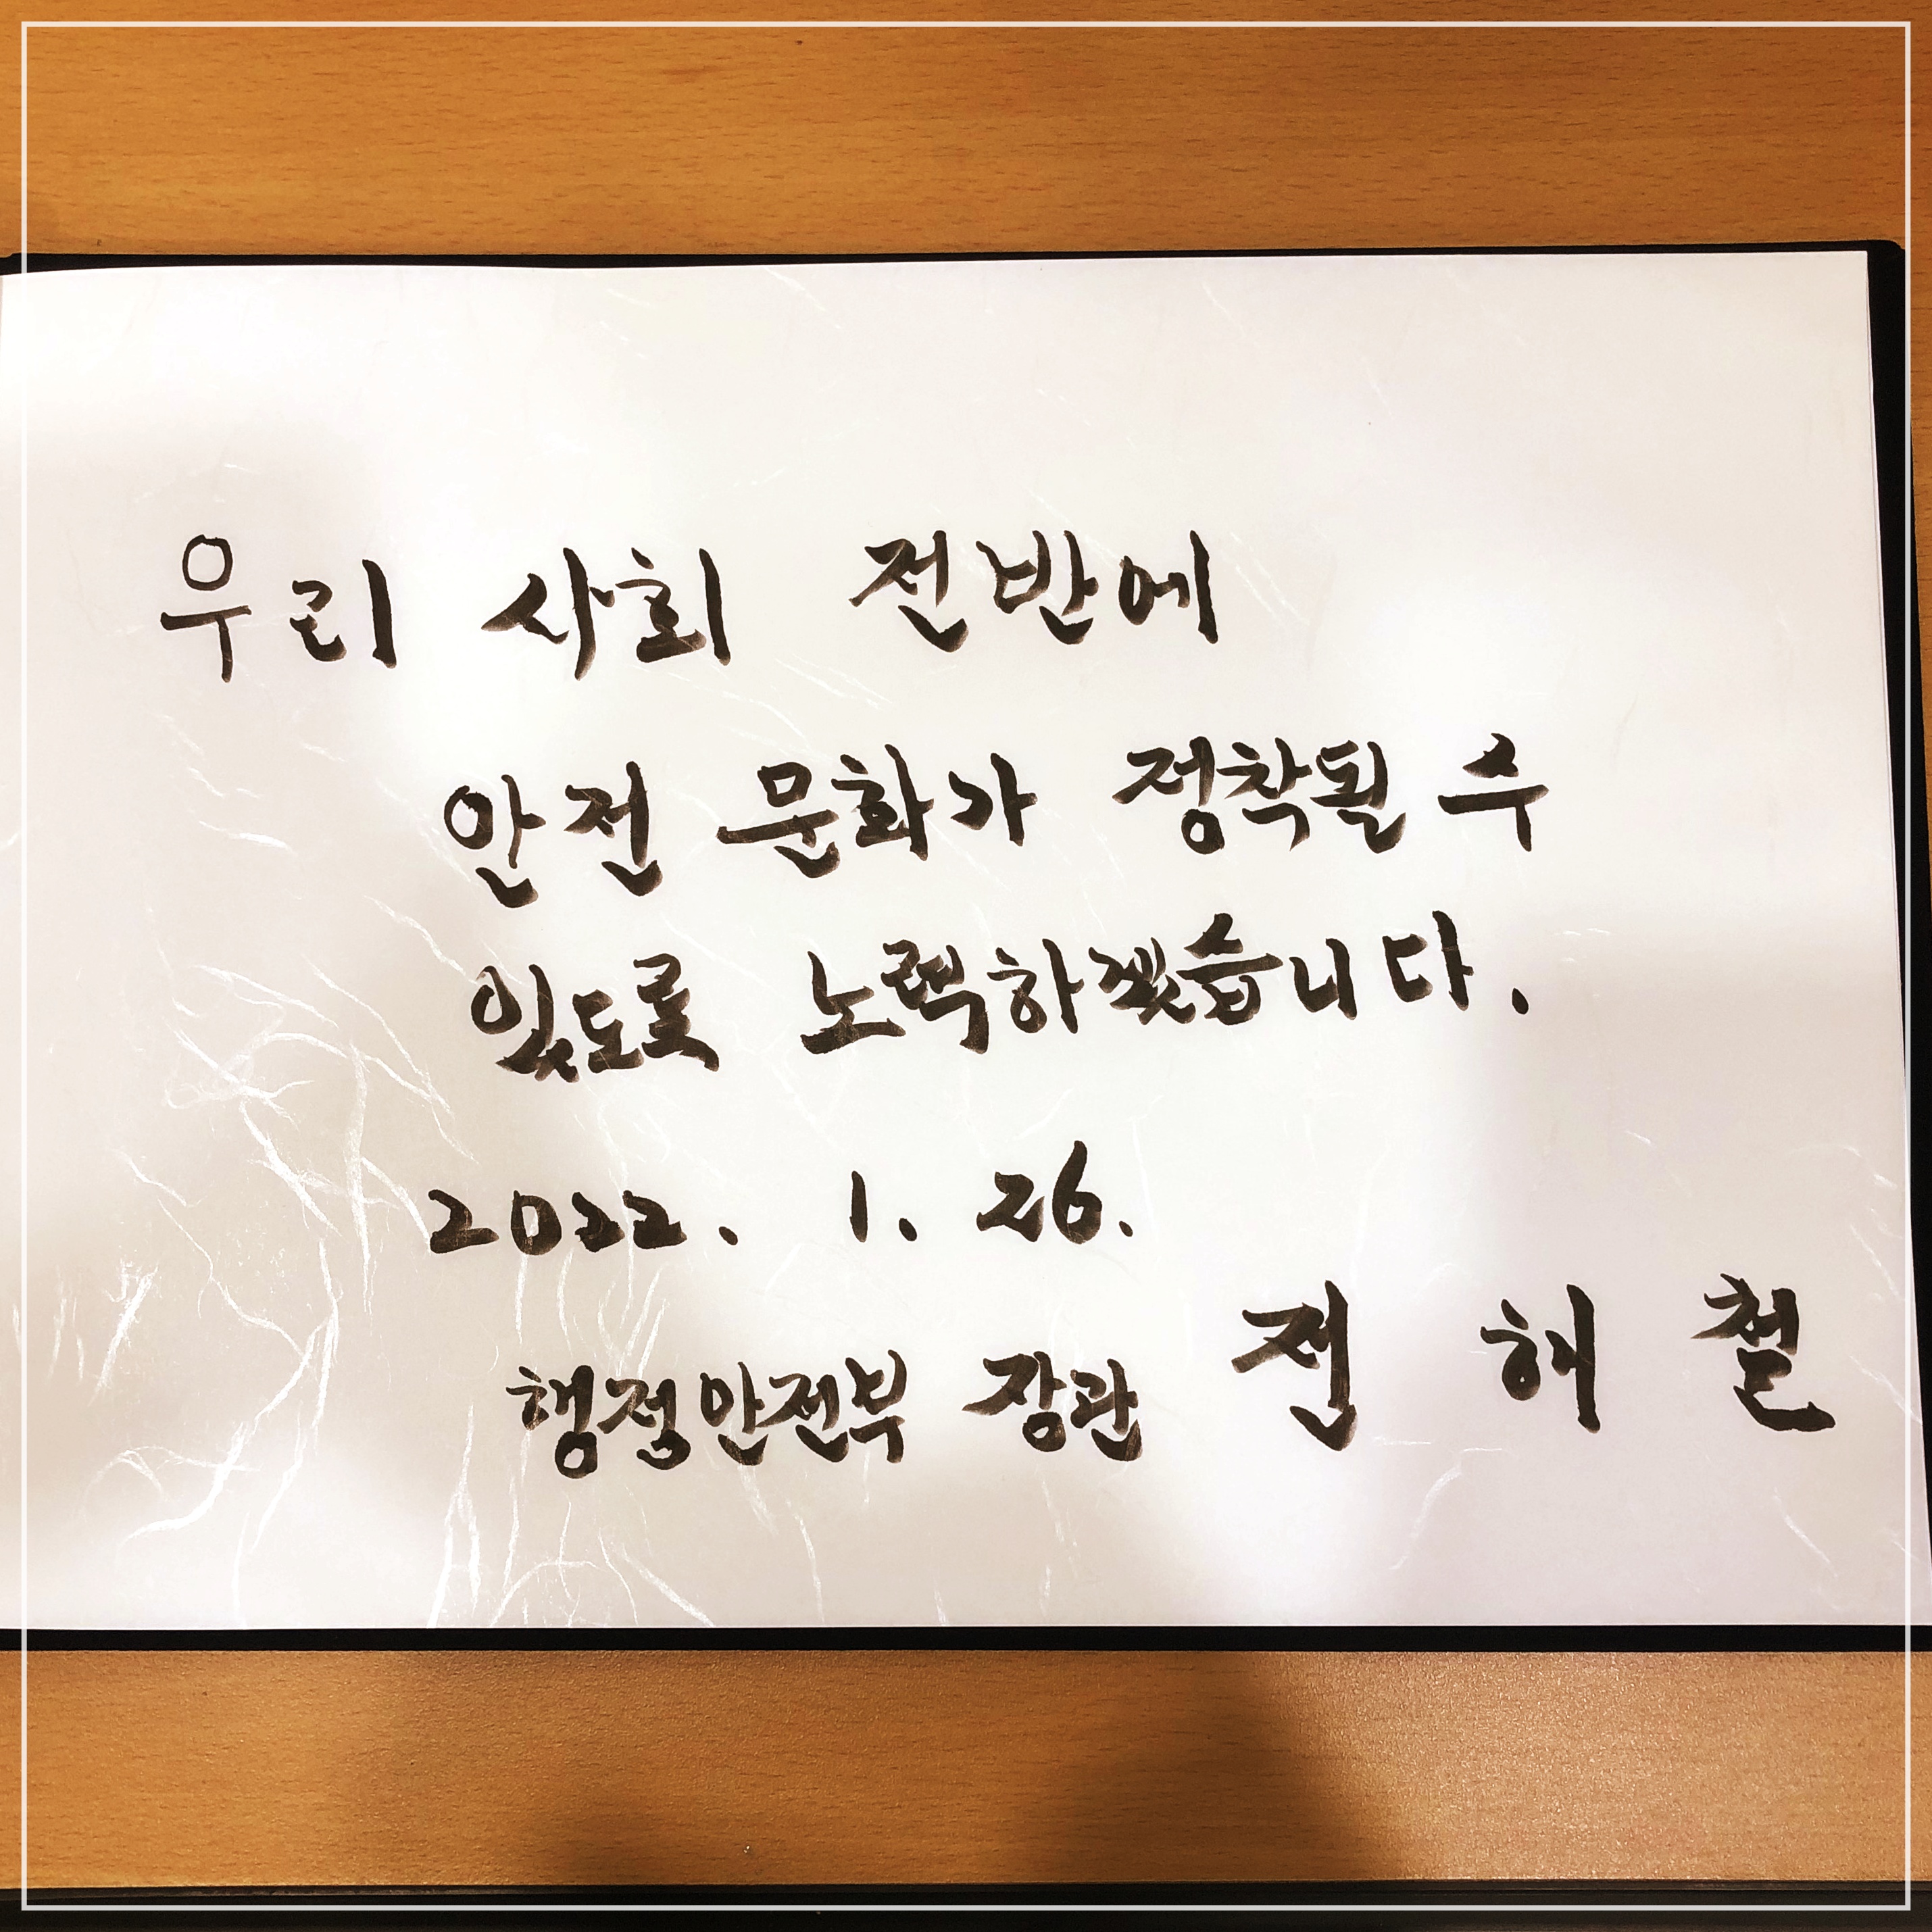 우리 사회 전반에
안전 문화가 정착될 수
있도록 노력하겠습니다.
2022. 1. 26.
행정안전부 장관 전해철